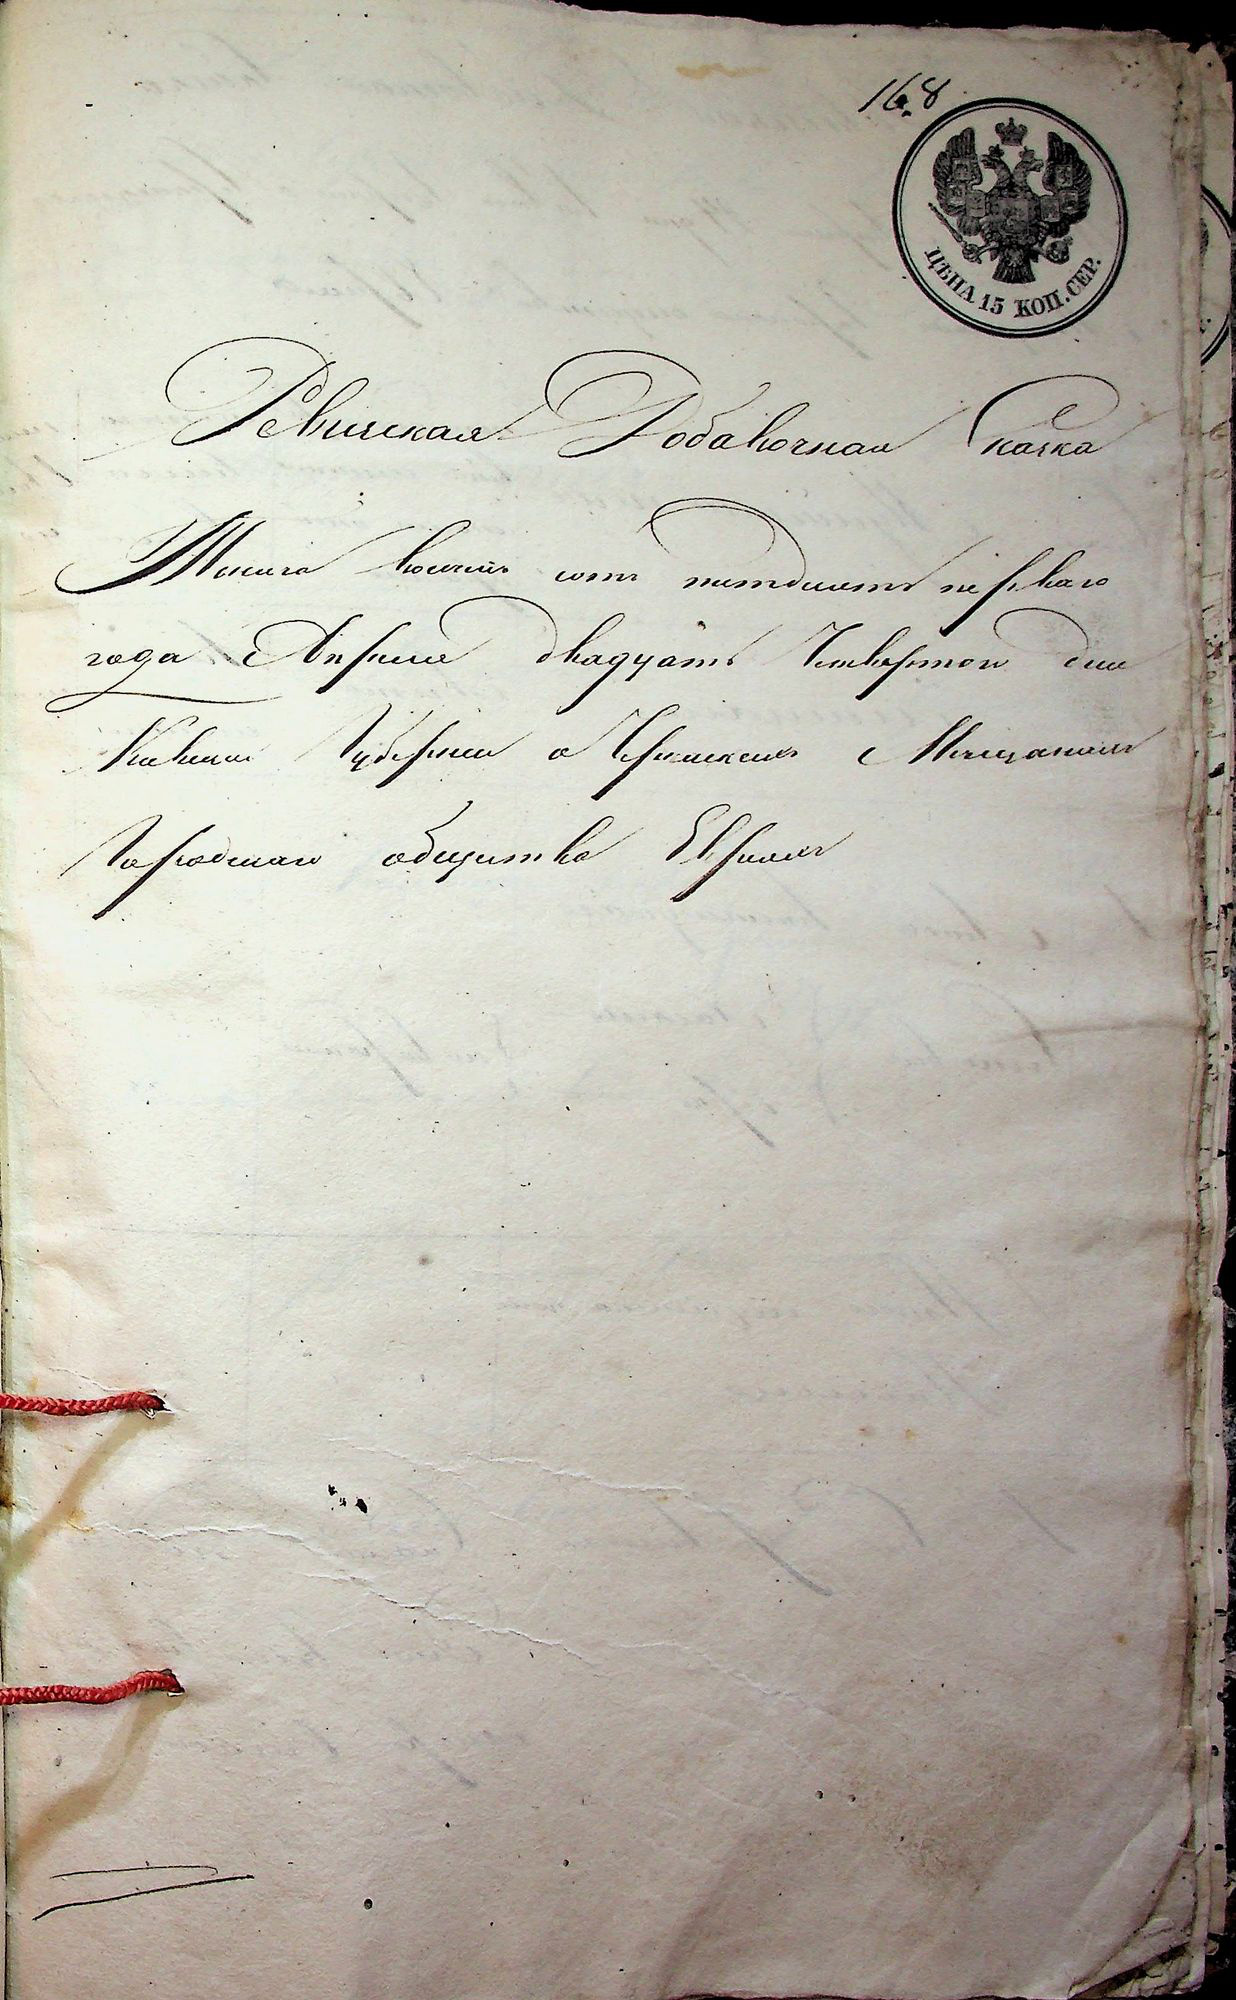 168
ЦѢНА 15 КОП. СЕР.
Ревижская Добавочная Сказка
Тысяча восемь сотъ пятдесятъ перваго
года Апреля двадцать Четвертого дня
Киевской Губернии о Мещанахъ
Городскаго общества Евреяхъ